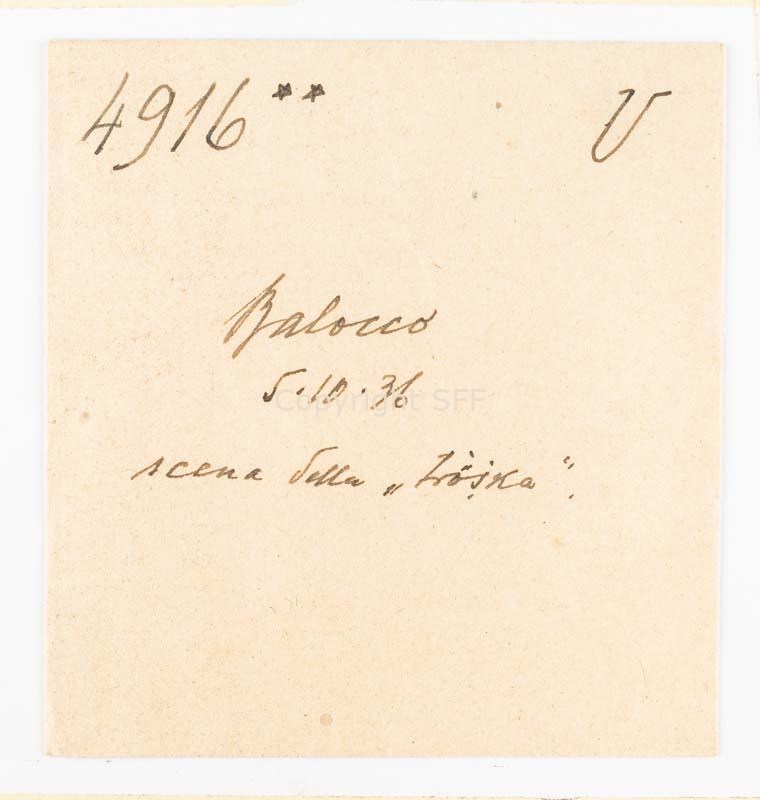 4916** V
Balocco
5.10.36
Copyright SFF
scena della „tròjka“.